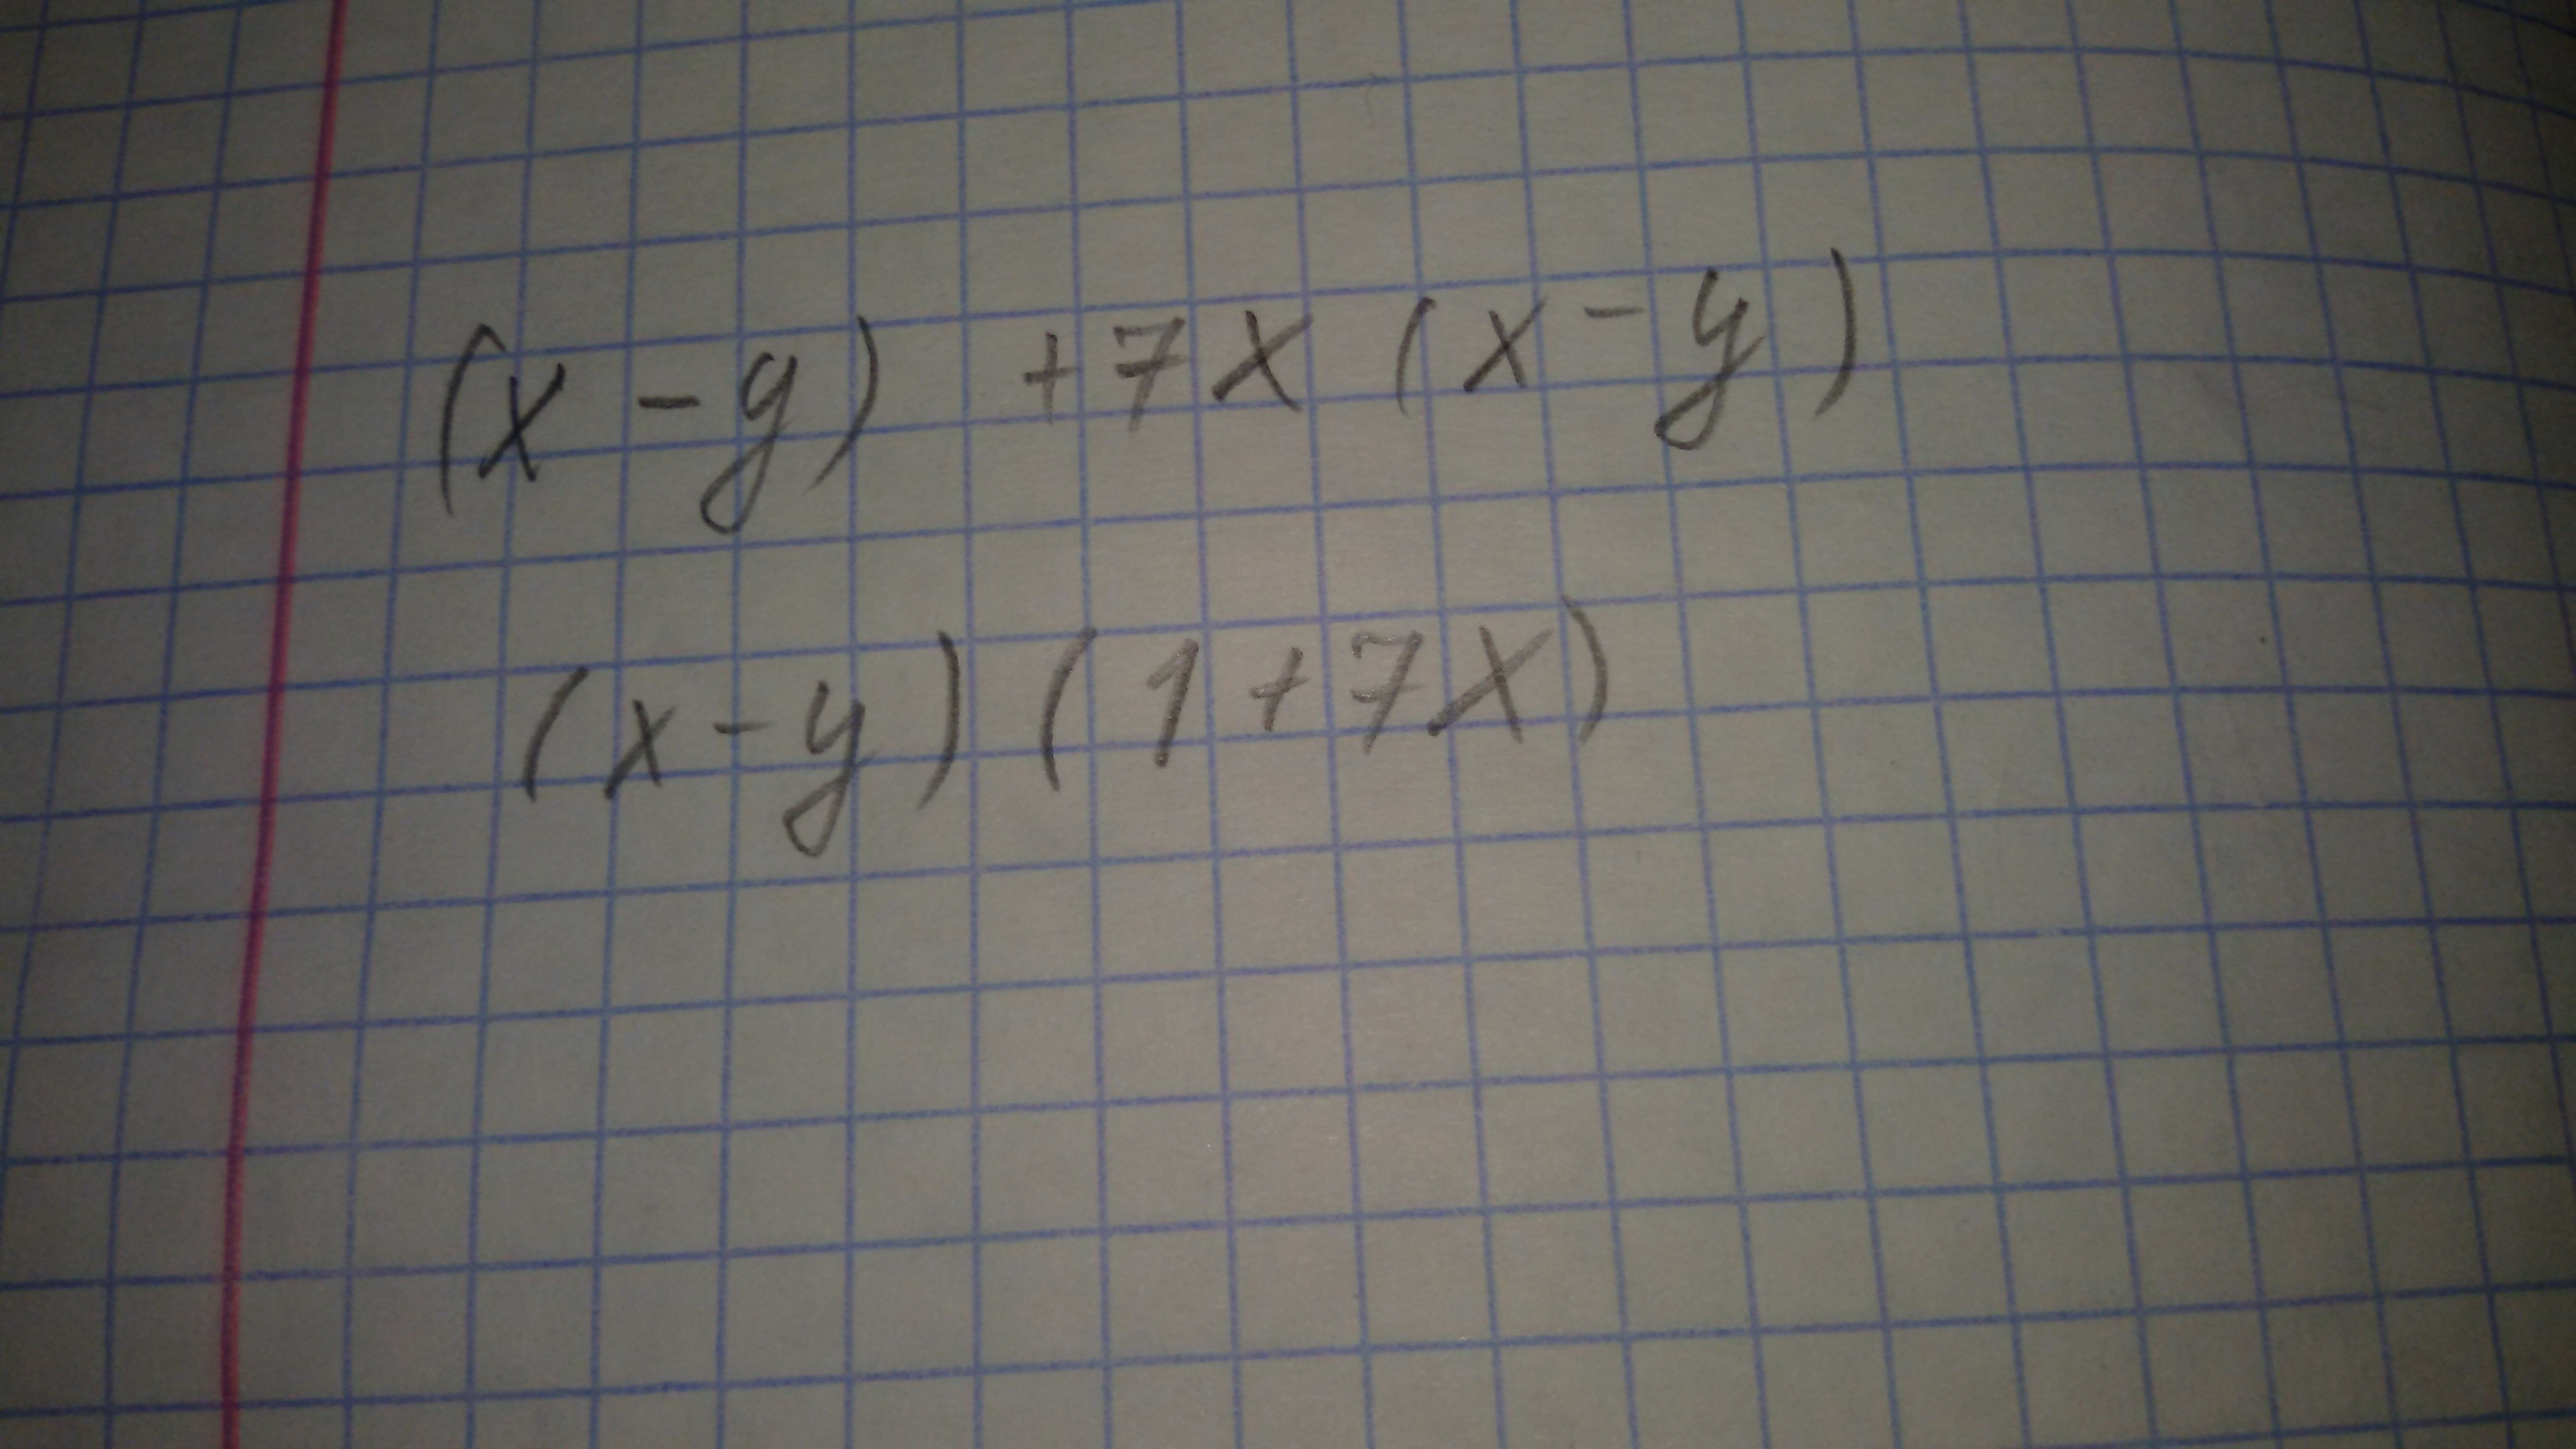 (x - y) + 7x (x - y)
(x - y) (1 + 7x)